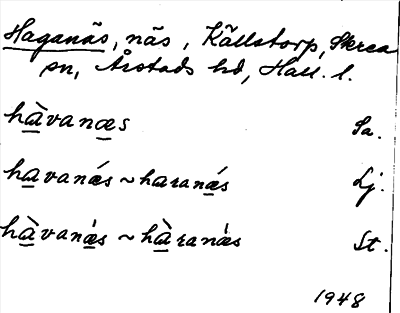 Haganäs, näs, Källstorp, Skrea
sn, Årstads hd, Hall. l.
hàvanæs Sa.
havanǽs ~ haranǽs Lj.
hàvanǽs ~ hàranǽs St.
1948